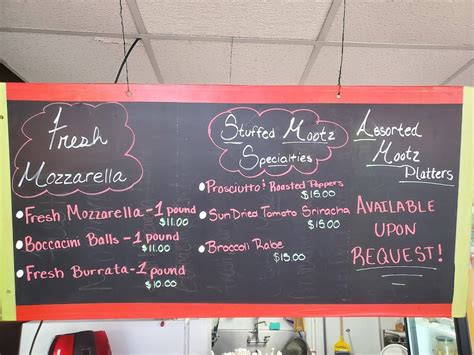 Fresh
Mozzarella
Fresh Mozzarella - 1 pound
$11.00
Boccacini Balls - 1 pound
$11.00
Fresh Burrata - 1 pound
$10.00
Stuffed Mootz
Specialties
Prosciutto & Roasted Peppers
$15.00
Sun Dried Tomato Sriracha
$15.00
Broccoli Rabe
$15.00
Assorted
Mootz
Platters
AVAILABLE
UPON
REQUEST!